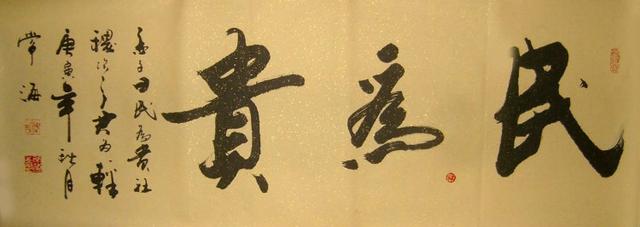 民為貴
孟子曰民為貴社
稷次之君為輕
庚寅年秋月
常海